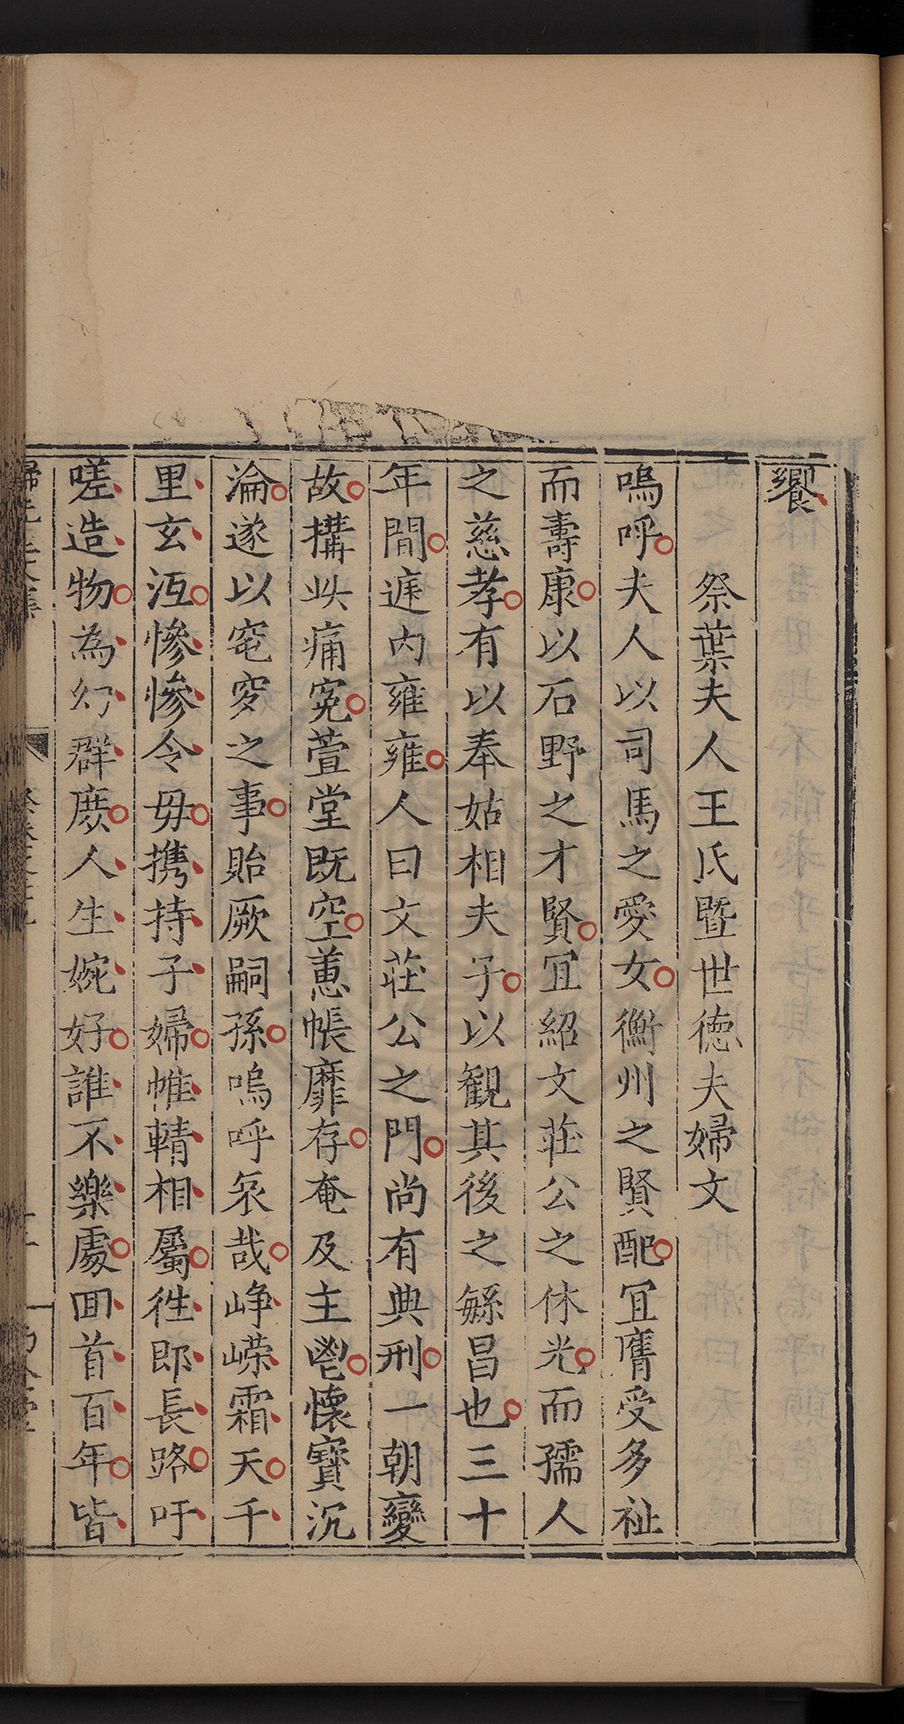 饗
祭葉夫人王氏暨世德夫婦文
嗚呼夫人以司馬之愛女衡州之賢配冝膺受多祉
而壽康以石野之才賢冝紹文莊公之休光而孺人
之慈孝有以奉姑相夫子以観其後之緐昌也三十
年間㢟内雍雍人曰文莊公之門尚有典刑一朝變
故搆㳄痛寃萱堂既空蕙帳靡存奄及主鬯懷寳沉
淪遂以窀穸之事貽厥嗣孫嗚呼哀哉崢嶸霜天千
里玄沍慘慘令毋携持子婦帷輤相屬徃即長路吁
嗟造物為幻群庻人生婉好誰不樂處囬首百年皆